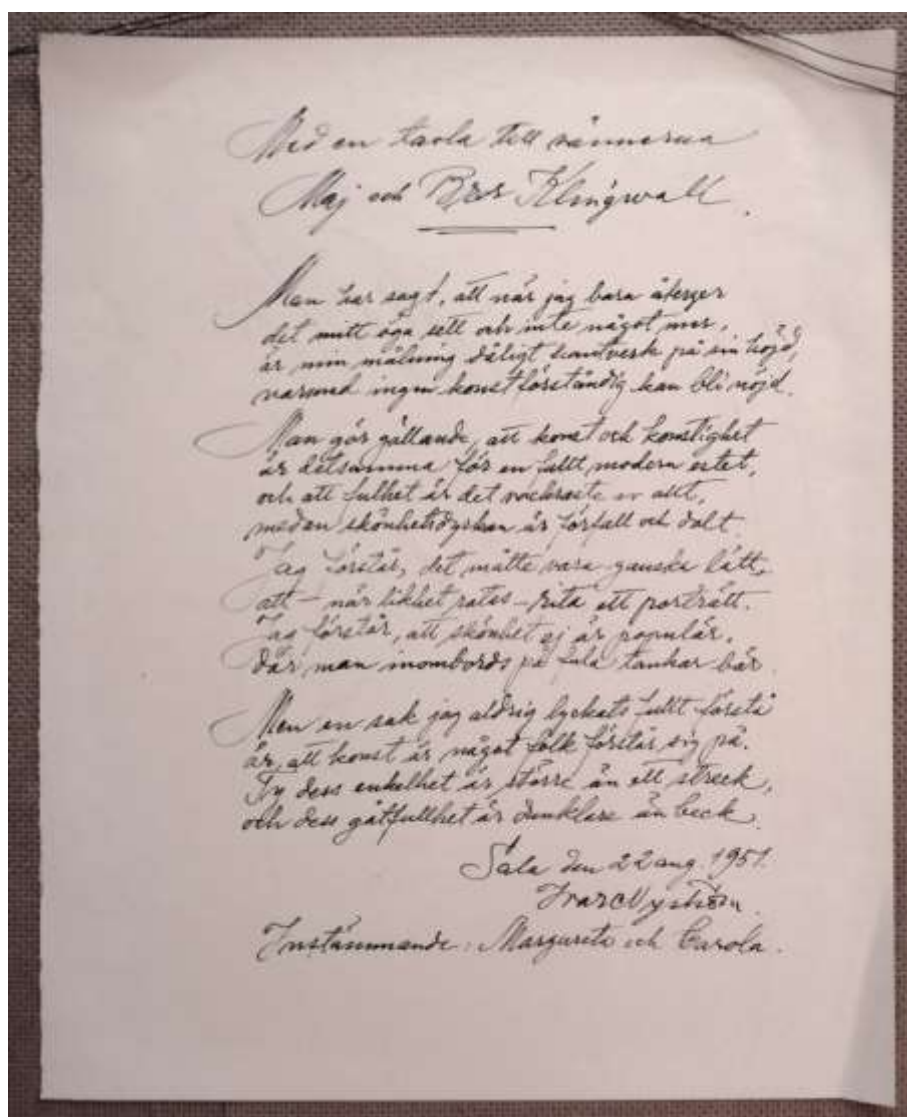 Med en tavla till vännerna
Maj och Bror Klingwall.
Man har sagt, att när jag bara återger
det mitt öga sett och inte något mer,
är min målning dåligt hantverk på sin höjd,
varmed ingen konstförståndig kan bli nöjd.
Man gör gällande, att konst och konstighet
är detsamma för en fullt modern estet,
och att fulhet är det vackraste av allt,
medan skönhetsdyrkan är förfall och
Jag förstår, det måtte vara ganska lätt,
att – när likhet ratas – rita ett porträtt.
Jag förstår, att skönhet ej är populär,
där man inombords på fula tankar bär.
Men en sak jag aldrig lyckats fullt förstå
är, att konst är något folk förstår sig på.
Ty dess enkelhet är större än ett streck,
och dess gåtfullhet är dunklare än beck.
Sala den 22 aug. 1951.
Ivar Nyström.
Instämmande: Margareta och Carola.